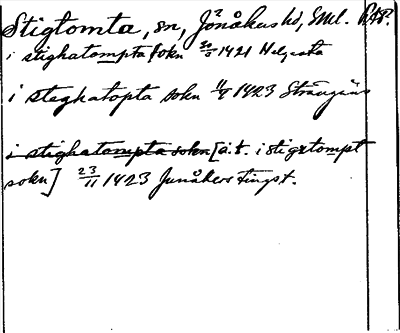 Stigtomta, sn, Jönåkers hd, Sml. RAP.
i stighatompta sokn 30/3 1421 Helgesta
i steghatopta sokn 11/4 1423 Strängnäs
i stighatompta sokn [ä.t. i stigxtompt
sokn] 23/11 1423 Junåkers tingst.